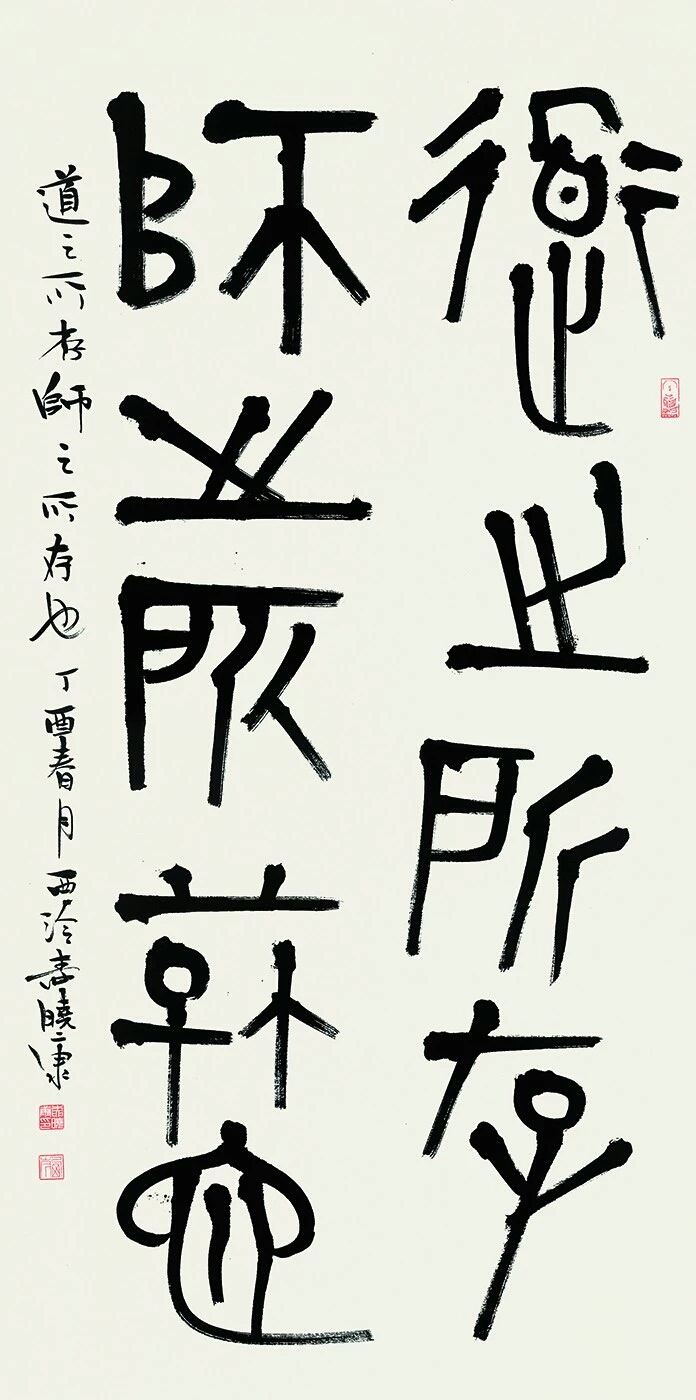 道之所存
師之所存也
道之所存師之所存也丁酉春月西泠袁曉康